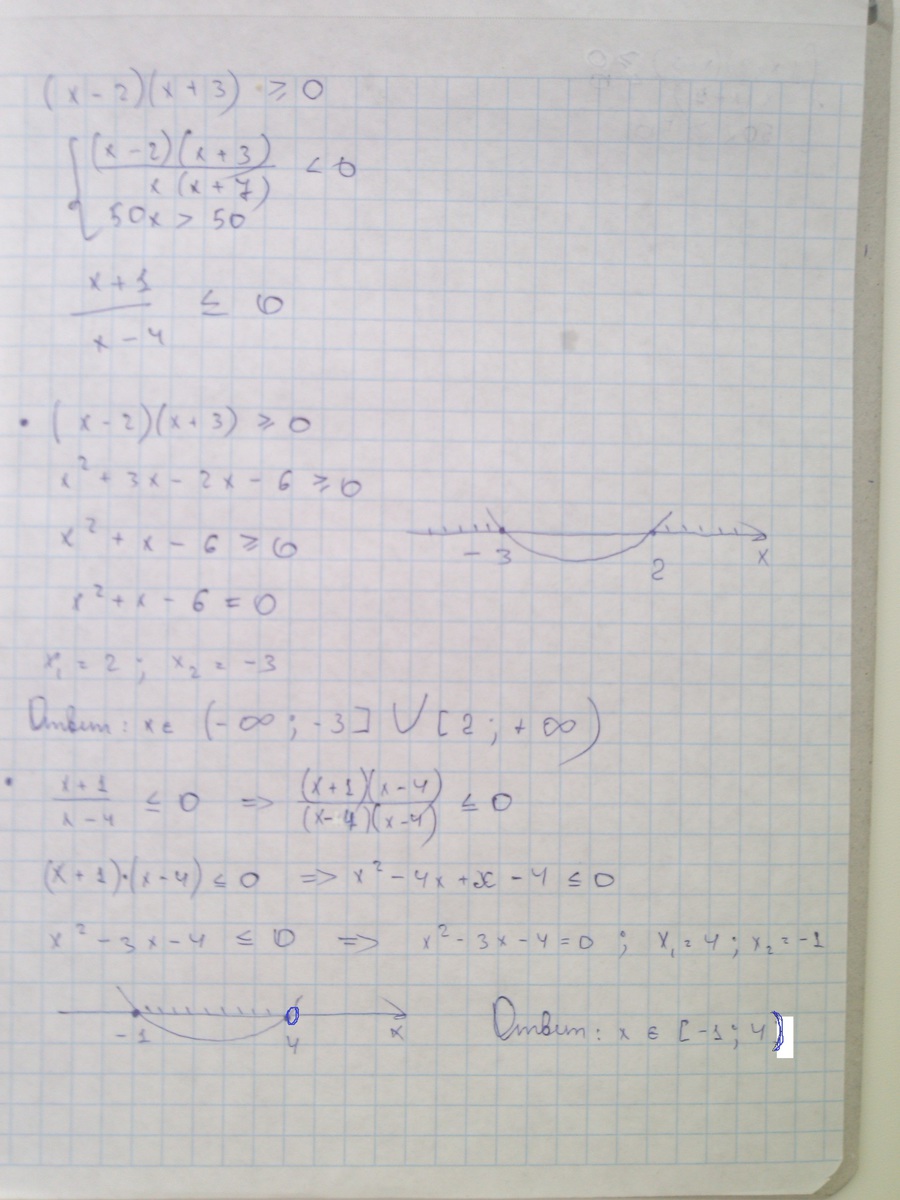 (x - 2)(x + 3) ≥ 0
(x - 2)(x + 3)
x (x + 7)
< 0
50x > 50
x + 1
x - 4
≤ 0
• (x - 2)(x + 3) ≥ 0
x² + 3x - 2x - 6 ≥ 0
x² + x - 6 ≥ 0
-3 2 x
x² + x - 6 = 0
x₁ = 2 ; x₂ = -3
Ответ: x ∈ (-∞ ; -3] ∪ [2 ; +∞)
• x + 1 / x - 4 ≤ 0 => (x + 1)(x - 4) / (x - 4)(x - 4) ≤ 0
(x + 1)·(x - 4) ≤ 0 => x² - 4x + x - 4 ≤ 0
x² - 3x - 4 ≤ 0 => x² - 3x - 4 = 0 ; x₁ = 4 ; x₂ = -1
-1 4 x
Ответ: x ∈ [-1 ; 4)